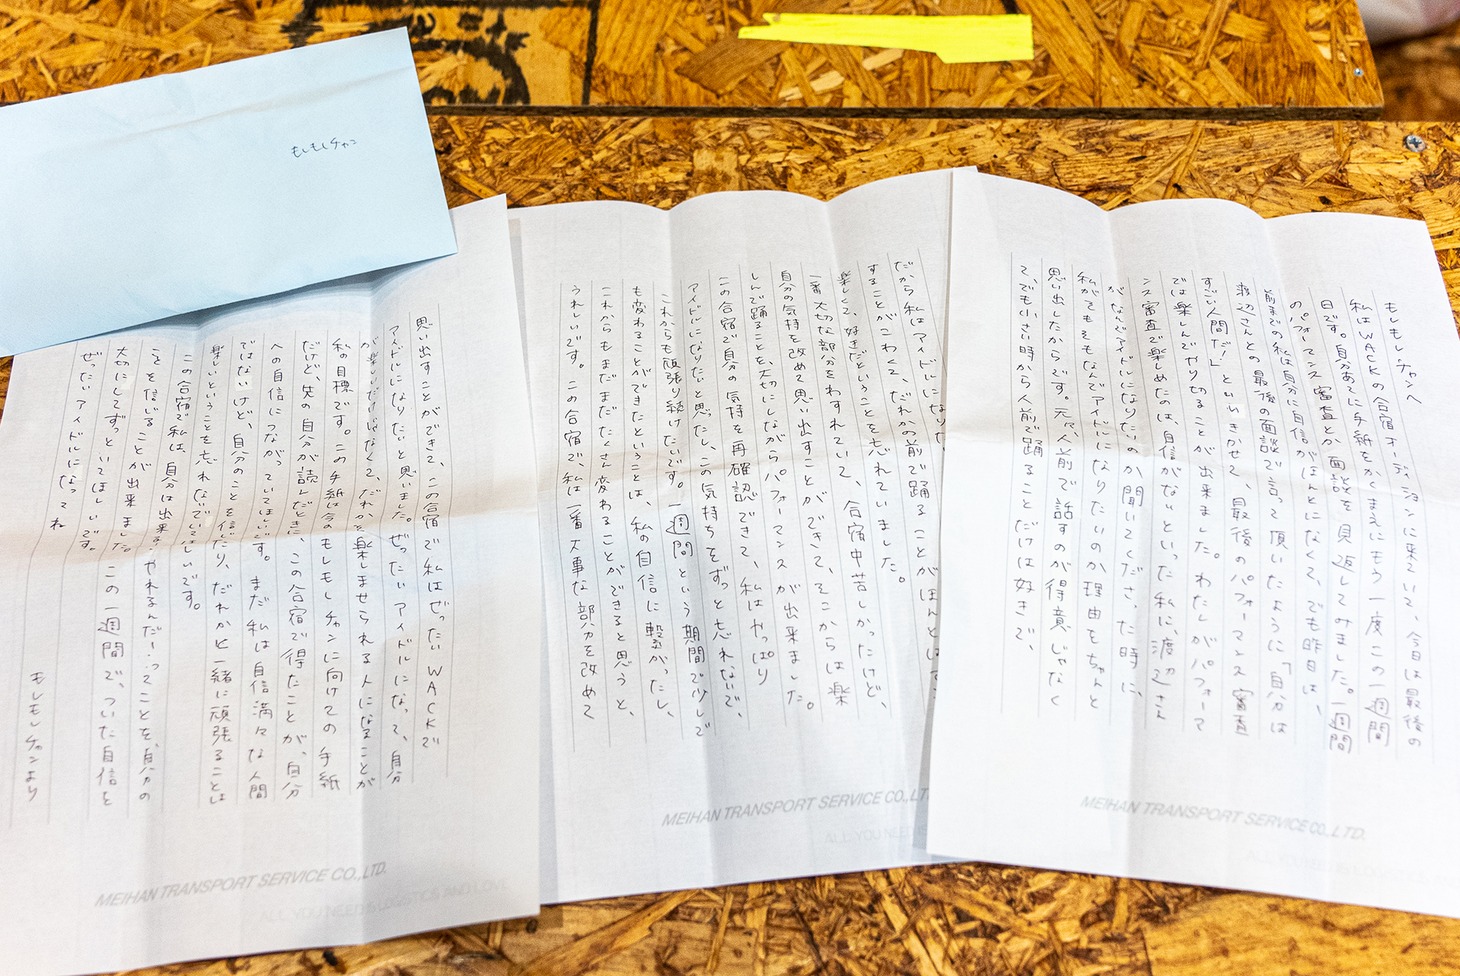 もしもしチャン
もしもしチャンへ
私はWACKの合宿オーディションに来ていて、今日は最後の
日です。自分あてに手紙をかくまえにもう一度この一週間
のパフォーマンス審査とか面談を見返してみました。一週間
前までの私は自分に自信がほんとになくて、でも昨日は、
渡辺さんとの最後の面談で言って頂いたように「自分は
すごい人間だ！」といいきかせて、最後のパフォーマンス審査
では楽しんでやり切ることが出来ました。わたしがパフォーマ
ンス審査で楽しめたのは、自信がないといった私に、渡辺さん
がなんでアイドルになりたいのか聞いてくださった時に、
私がそもそもなんでアイドルになりたいのか理由をちゃんと
思い出したからです。元々人前で話すのが得意じゃなく
てでも小さい時から人前で踊ることだけは好きで、
だから私はアイドルになりた
することがこわくて、だれかの前で踊ることがほんとはす
楽しくて、好きだということを忘れていました。
一番大切な部分をわすれていて、合宿中苦しかったけど、
自分の気持を改めて思い出すことができて、そこからは楽
しんで踊ることを、大切にしながらパフォーマンスが出来ました。
この合宿で自分の気持を再確認できて、私はやっぱり
アイドルになりたいと思ったし、この気持ちをずっと忘れないで、
これからも頑張り続けたいです。一週間という期間で少しで
も変わることができたということは、私の自信に繋がったし、
これからもまだまだたくさん変わることができると思うと、
うれしいです。この合宿で、私は一番大事な部分を改めて
思い出すことができて、この合宿で私はぜったいWACKで
アイドルになりたいと思いました。ぜったいアイドルになって、自分
が楽しいだけじゃなくて、だれかを楽しませられる人になることが
私の目標です。この手紙は今のもしもしチャンに向けての手紙
だけど、先の自分が読んだときに、この合宿で得たことが、自分
への自信につながっていてほしいです。まだ私は自信満々な人間
ではないけど、自分のことを信じたり、だれかと一緒に頑張ることは
楽しいということを忘れないでいてほしいです。
この合宿で私は、自分は出来る・やれるんだ！ってことを、自分の
ことを信じることが出来ました。この一週間で、ついた自信を
大切にしてずっといてほしいです。
ぜったいアイドルになってね
もしもしチャンより
MEIHAN TRANSPORT SERVICE CO.,LTD.
ALL YOU NEED IS LOGISTICS AND LOVE
MEIHAN TRANSPORT SERVICE CO.,LT
ALL YOU NEED
MEIHAN TRANSPORT SERVICE CO.,LTD.